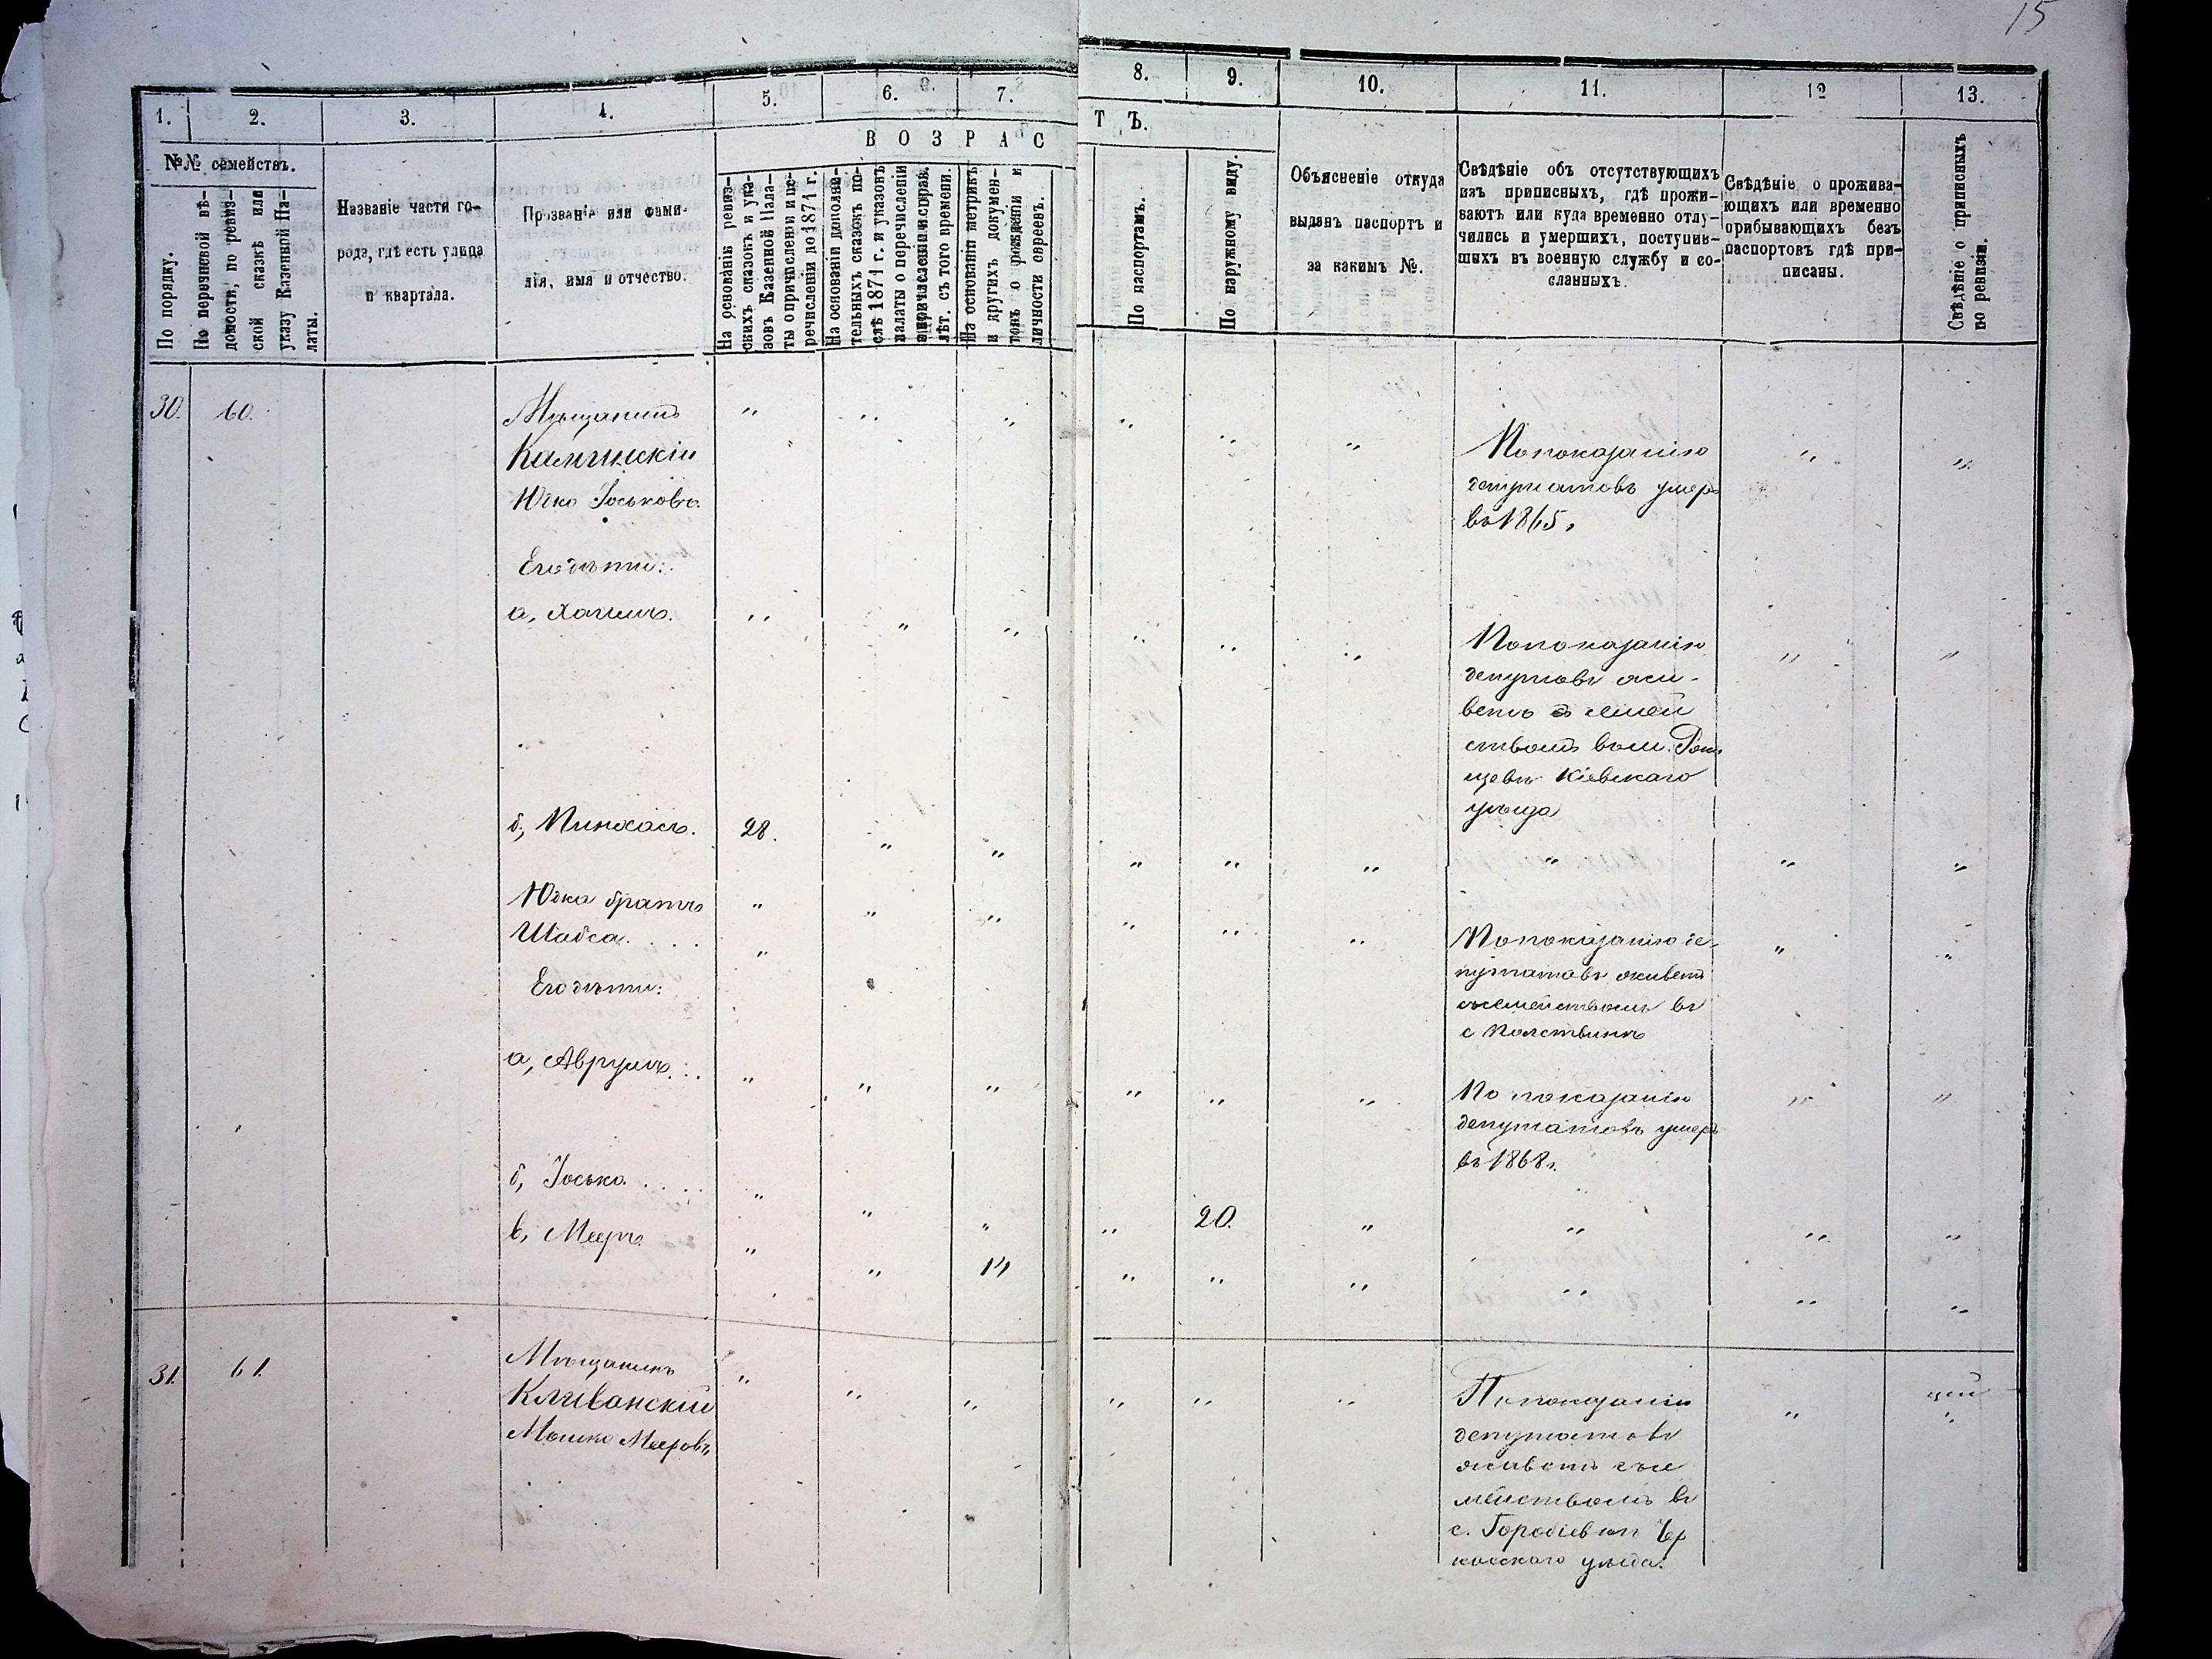 15
1. 2. 3. 4. 5. 6. 7. 8. 9. 10. 11. 12 13.
ВОЗРАСТЪ.
№№ семействъ.
По порядку.
По перечневой вѣ-
домости, по ревиз-
ской сказкѣ или
указу Казенной Па-
латы.
Названіе части го-
рода, гдѣ есть улица
и квартала.
Прозваніе или фами-
лія, имя и отчество.
На основаніи ревиз-
скихъ сказокъ и ука-
зовъ Казенной Пала-
ты о причисленіи и пе-
речисленіи до 1871 г.
На основаніи дополни-
тельныхъ сказокъ по-
слѣ 1871 г. и указовъ
палаты о перечисленіи
и причисленіи и справ.
лѣт. съ того времени.
На основаніи метрикъ
и другихъ докумен-
товъ о рожденіи и
личности евреевъ.
По паспортамъ.
По наружному виду.
Объясненіе откуда
выданъ паспортъ и
за какимъ №.
Свѣдѣніе объ отсутствующихъ
изъ приписныхъ, гдѣ прожи-
ваютъ или куда временно отлу-
чились и умершихъ, поступив-
шихъ въ военную службу и со-
сланныхъ.
Свѣдѣніе о прожива-
ющихъ или временно
прибывающихъ безъ
паспортовъ гдѣ при-
писаны.
Свѣдѣніе о приписныхъ
по ревизіи.
30. 60. Мѣщанинъ
Каминскій
Юдко Іоськовъ.
По показанію
депутатовъ умеръ
въ 1865 г.
Его дѣти:
а, Хаимъ.
По показанію
депутовъ жи-
ветъ съ семей
ствомъ въ м.
щевѣ Кіевскаго
уѣзда
б, Пинхасъ. 28.
Юдка братъ
Шабса....
По показанію де-
путатовъ живетъ
съ семействомъ въ
с Полствинѣ
Его дѣти:
а, Аврумъ...
По показанію
депутатовъ умеръ
въ 1868 г.
б, Іосько.... 20.
в, Мееръ. 14
31. 61. Мѣщанинъ
Кливанскій
Мошко Мееровъ
По показанію
депутатовъ
живетъ съ се
мействомъ въ
с. Чер
касскаго уѣзда.